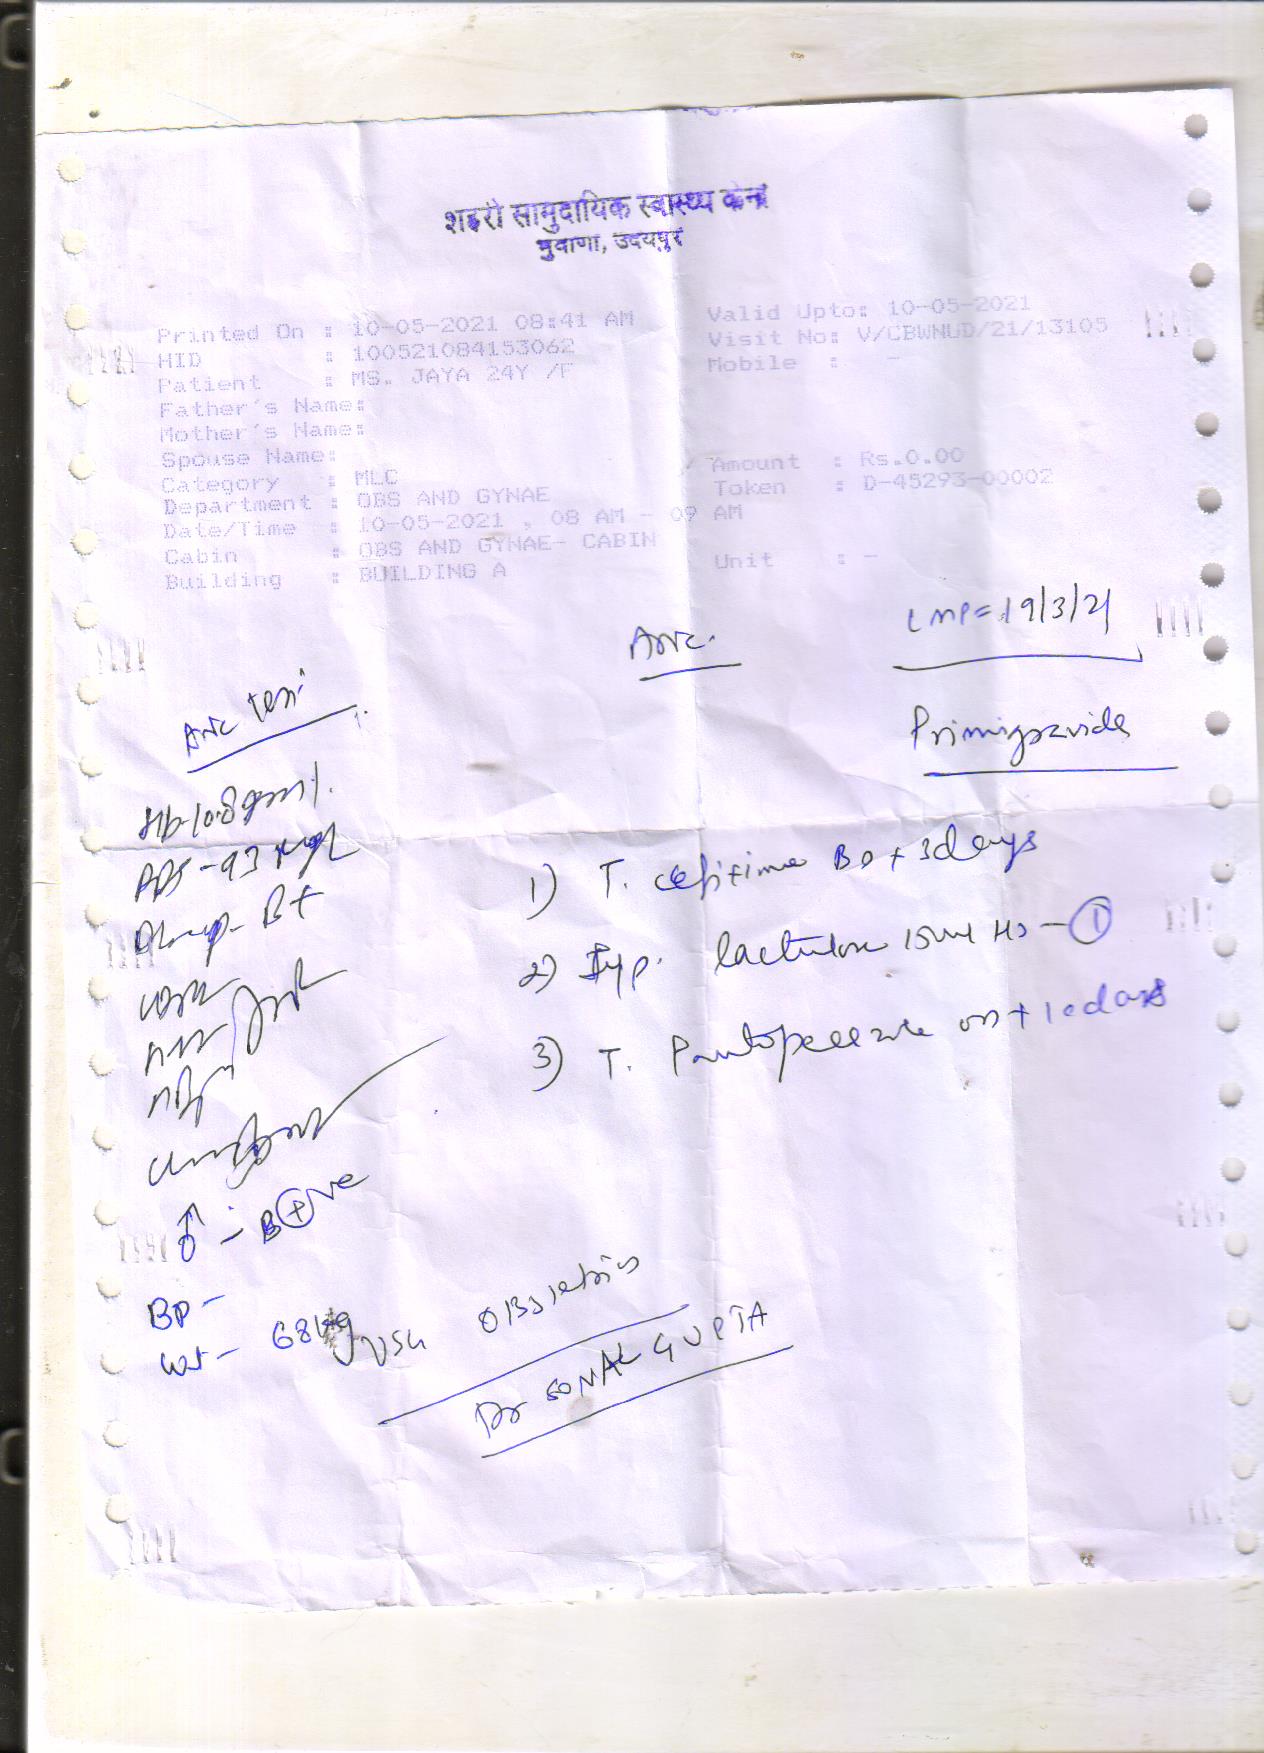 शहरी सामुदायिक स्वास्थ्य केन्द्र
भुवाणा, उदयपुर
Printed On : 10-05-2021 08:41 AM
Valid Upto: 10-05-2021
HID : 100521084153062
Visit No: V/CBWNUD/21/13105
Patient : MS. JAYA 24Y /F
Mobile : -
Father's Name:
Mother's Name:
Spouse Name:
Category : MLC
Amount : Rs.0.00
Department : OBS AND GYNAE
Token : D-45293-00002
Date/Time : 10-05-2021 , 08 AM - 09 AM
Cabin : OBS AND GYNAE- CABIN
Building : BUILDING A
Unit : -
ANC.
LMP = 19/3/21
Primigravida
ANC
Hb-10.8 gm%.
- 93
B+
1) T. cefixime BD + 3days
2) Syp. lactulose 15ml HS - 1
3) T. Pantoprazole OD + 10days
♂ - B ⊕ve
BP -
wt - 68 kg
USG Obstetrics
Dr SONAL GUPTA